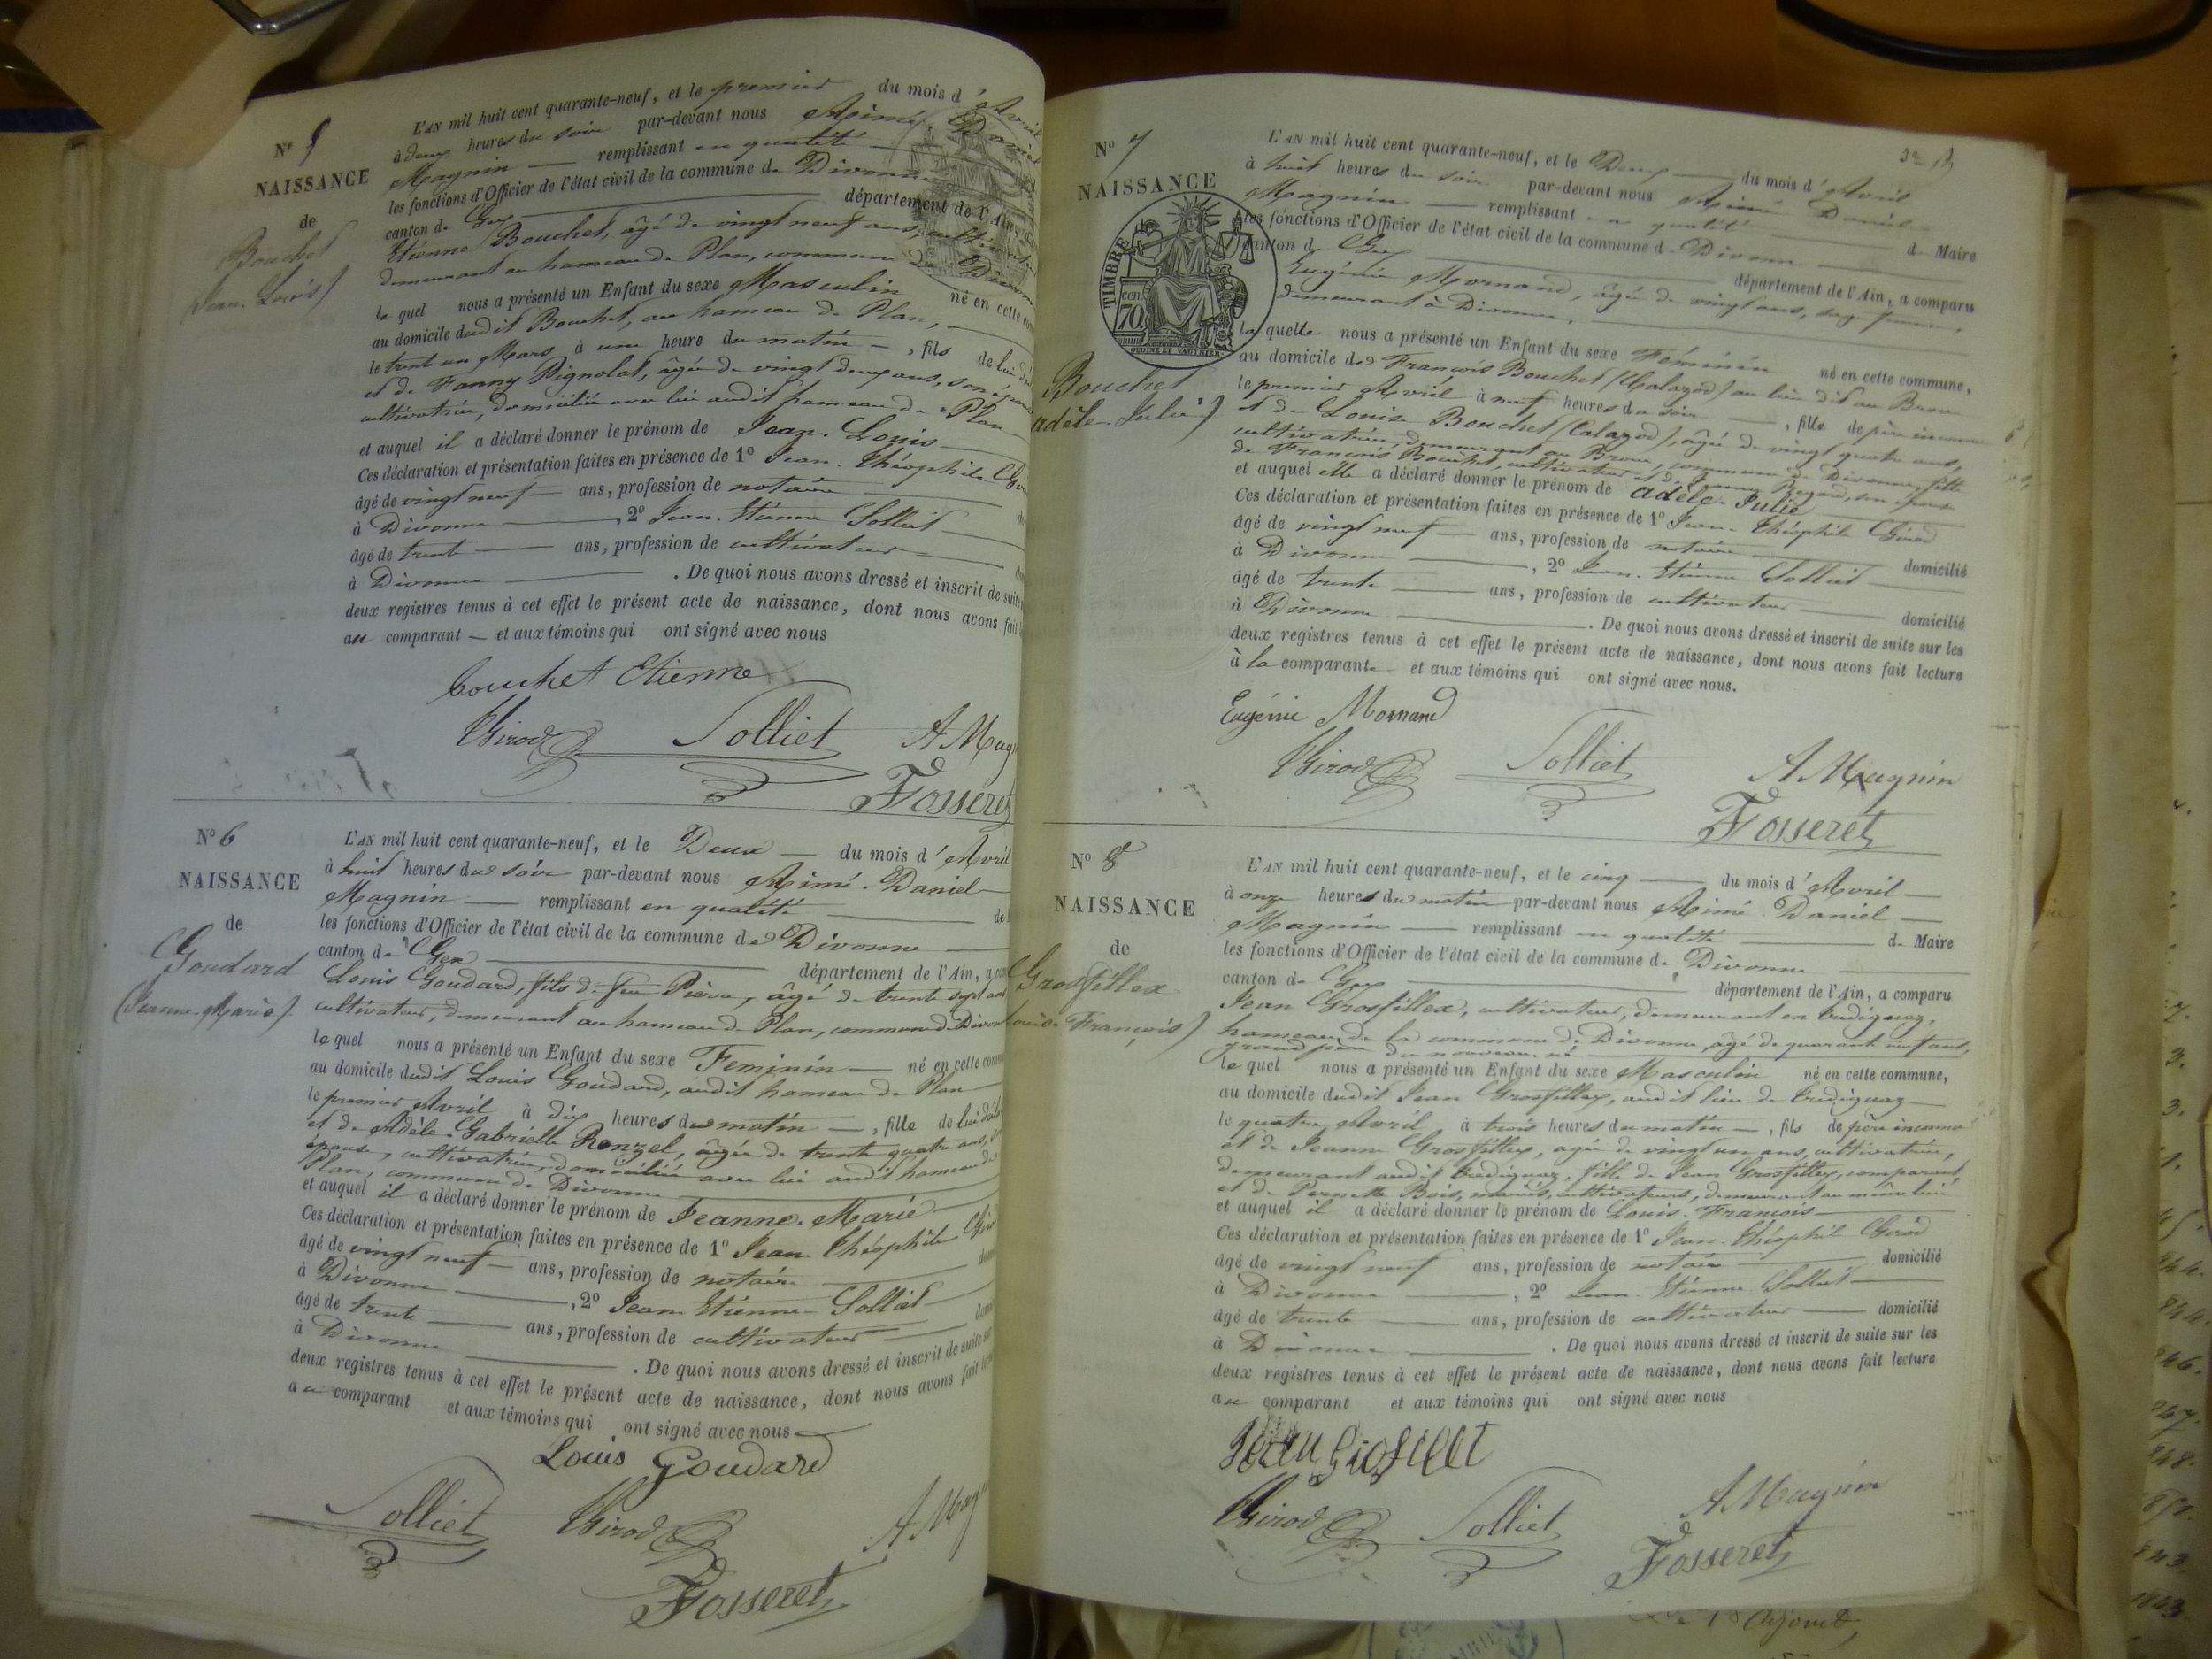 N° 5
NAISSANCE
de
Bouchet
(Jean-Louis)
L'AN mil huit cent quarante-neuf, et le premier du mois d'Avril
à deux heures du soir par-devant nous Aimé Daniel
Magnin — remplissant en qualité
les fonctions d'Officier de l'état civil de la commune de Divonne
canton de Gex département de l'Ain,
Etienne Bouchet, âgé de vingt neuf ans, cultivateur
demeurant au hameau de Plan, commune de Divonne
le quel nous a présenté un Enfant du sexe Masculin né en cette
au domicile dudit Bouchet, au hameau de Plan,
le trente un Mars à une heure du matin —, fils de lui
et de Fanny Pignolat, âgée de vingt deux ans, son épouse
cultivatrice, domiciliée avec lui audit hameau de Plan
et auquel il a déclaré donner le prénom de Jean-Louis
Ces déclaration et présentation faites en présence de 1° Jean-Théophile
âgé de vingt neuf — ans, profession de notaire
à Divonne —, 2° Jean-Etienne Solliet
âgé de trente — ans, profession de cultivateur —
à Divonne — . De quoi nous avons dressé et inscrit de suite
deux registres tenus à cet effet le présent acte de naissance, dont nous avons fait
au comparant — et aux témoins qui ont signé avec nous
Bouchet Etienne
Girod Solliet A Magn
Fosseret
N° 6
NAISSANCE
de
Goudard
(Jeanne-Marie)
L'AN mil huit cent quarante-neuf, et le Deux — du mois d'Avril
à huit heures du soir par-devant nous Aimé-Daniel
Magnin — remplissant en qualité
les fonctions d'Officier de l'état civil de la commune de Divonne
canton de Gex département de l'Ain, a
Louis Goudard, fils de feu Pierre, âgé de trente sept ans
cultivateur, demeurant au hameau de Plan, commune de Divonne
le quel nous a présenté un Enfant du sexe Feminin — né en cette
au domicile dudit Louis Goudard, audit hameau de Plan
le premier Avril à dix heures du matin —, fille de lui
et de Adèle-Gabrielle Ronzel, âgée de trente quatre ans,
épouse, cultivatrice, domiciliée avec lui audit hameau de
Plan, commune de Divonne
et auquel il a déclaré donner le prénom de Jeanne-Marie
Ces déclaration et présentation faites en présence de 1° Jean Théophile
âgé de vingt neuf — ans, profession de notaire
à Divonne —, 2° Jean-Etienne-Solliet
âgé de trente — ans, profession de cultivateur —
à Divonne — . De quoi nous avons dressé et inscrit de suite
deux registres tenus à cet effet le présent acte de naissance, dont nous avons fait
au comparant et aux témoins qui ont signé avec nous
Louis Goudard
Solliet Girod A Mag
Fosseret
N° 7
NAISSANCE
TIMBRE
70
Bouchet
adèle-Julie)
L'AN mil huit cent quarante-neuf, et le Deux — du mois d'Avril
à huit heures du soir par-devant nous Aimé Daniel
Magnin — remplissant en qualité de Maire
les fonctions d'Officier de l'état civil de la commune de Divonne
canton de Gex département de l'Ain, a comparu
Eugénie Mornand, âgée de vingt ans, sage femme,
demeurant à Divonne,
la quelle nous a présenté un Enfant du sexe Féminin né en cette commune,
au domicile de François Bouchet (Calazod) au lieu dit au Broue
le premier Avril à neuf heures du soir —, fille de père inconnu
et de Louise Bouchet (Calazod), âgée de vingt quatre ans,
cultivatrice, demeurant au Broue, commune de Divonne, fille
de François Bouchet, cultivateur et de
et auquel elle a déclaré donner le prénom de adèle-Julie
Ces déclaration et présentation faites en présence de 1° Jean-Théophile Girod
âgé de vingt neuf — ans, profession de notaire
à Divonne —, 2° Jean-Etienne Solliet domicilié
âgé de trente — ans, profession de cultivateur
à Divonne — . De quoi nous avons dressé et inscrit de suite sur les domicilié
deux registres tenus à cet effet le présent acte de naissance, dont nous avons fait lecture
à la comparante et aux témoins qui ont signé avec nous.
Eugénie Mornand
Girod Solliet A Magnin
Fosseret
N° 8
NAISSANCE
de
Grosfillex
Louis-François)
L'AN mil huit cent quarante-neuf, et le cinq — du mois d'Avril —
à onze heures du matin par-devant nous Aimé Daniel —
Magnin — remplissant en qualité de Maire
les fonctions d'Officier de l'état civil de la commune de Divonne
canton de Gex département de l'Ain, a comparu
Jean Grosfillex, cultivateur, demeurant en
hameau de la commune de Divonne, âgé de quarante neuf ans,
grand père du nouveau né
le quel nous a présenté un Enfant du sexe Masculin né en cette commune,
au domicile dudit Jean Grosfillex, audit lieu de
le quatre Avril à trois heures du matin —, fils de père inconnu
et de Jeanne Grosfillex, agée de vingt un ans, cultivatrice,
demeurant audit fille de Jean Grosfillex, comparant,
et de Pernette Bois, mariés, cultivateurs, demeurant au même lieu
et auquel il a déclaré donner le prénom de Louis-François
Ces déclaration et présentation faites en présence de 1° Jean-Théophile Girod
âgé de vingt neuf ans, profession de notaire domicilié
à Divonne —, 2° Jean-Etienne Solliet
âgé de trente — ans, profession de cultivateur — domicilié
à Divonne — . De quoi nous avons dressé et inscrit de suite sur les
deux registres tenus à cet effet le présent acte de naissance, dont nous avons fait lecture
au comparant et aux témoins qui ont signé avec nous
Girod Solliet A Magnin
Fosseret